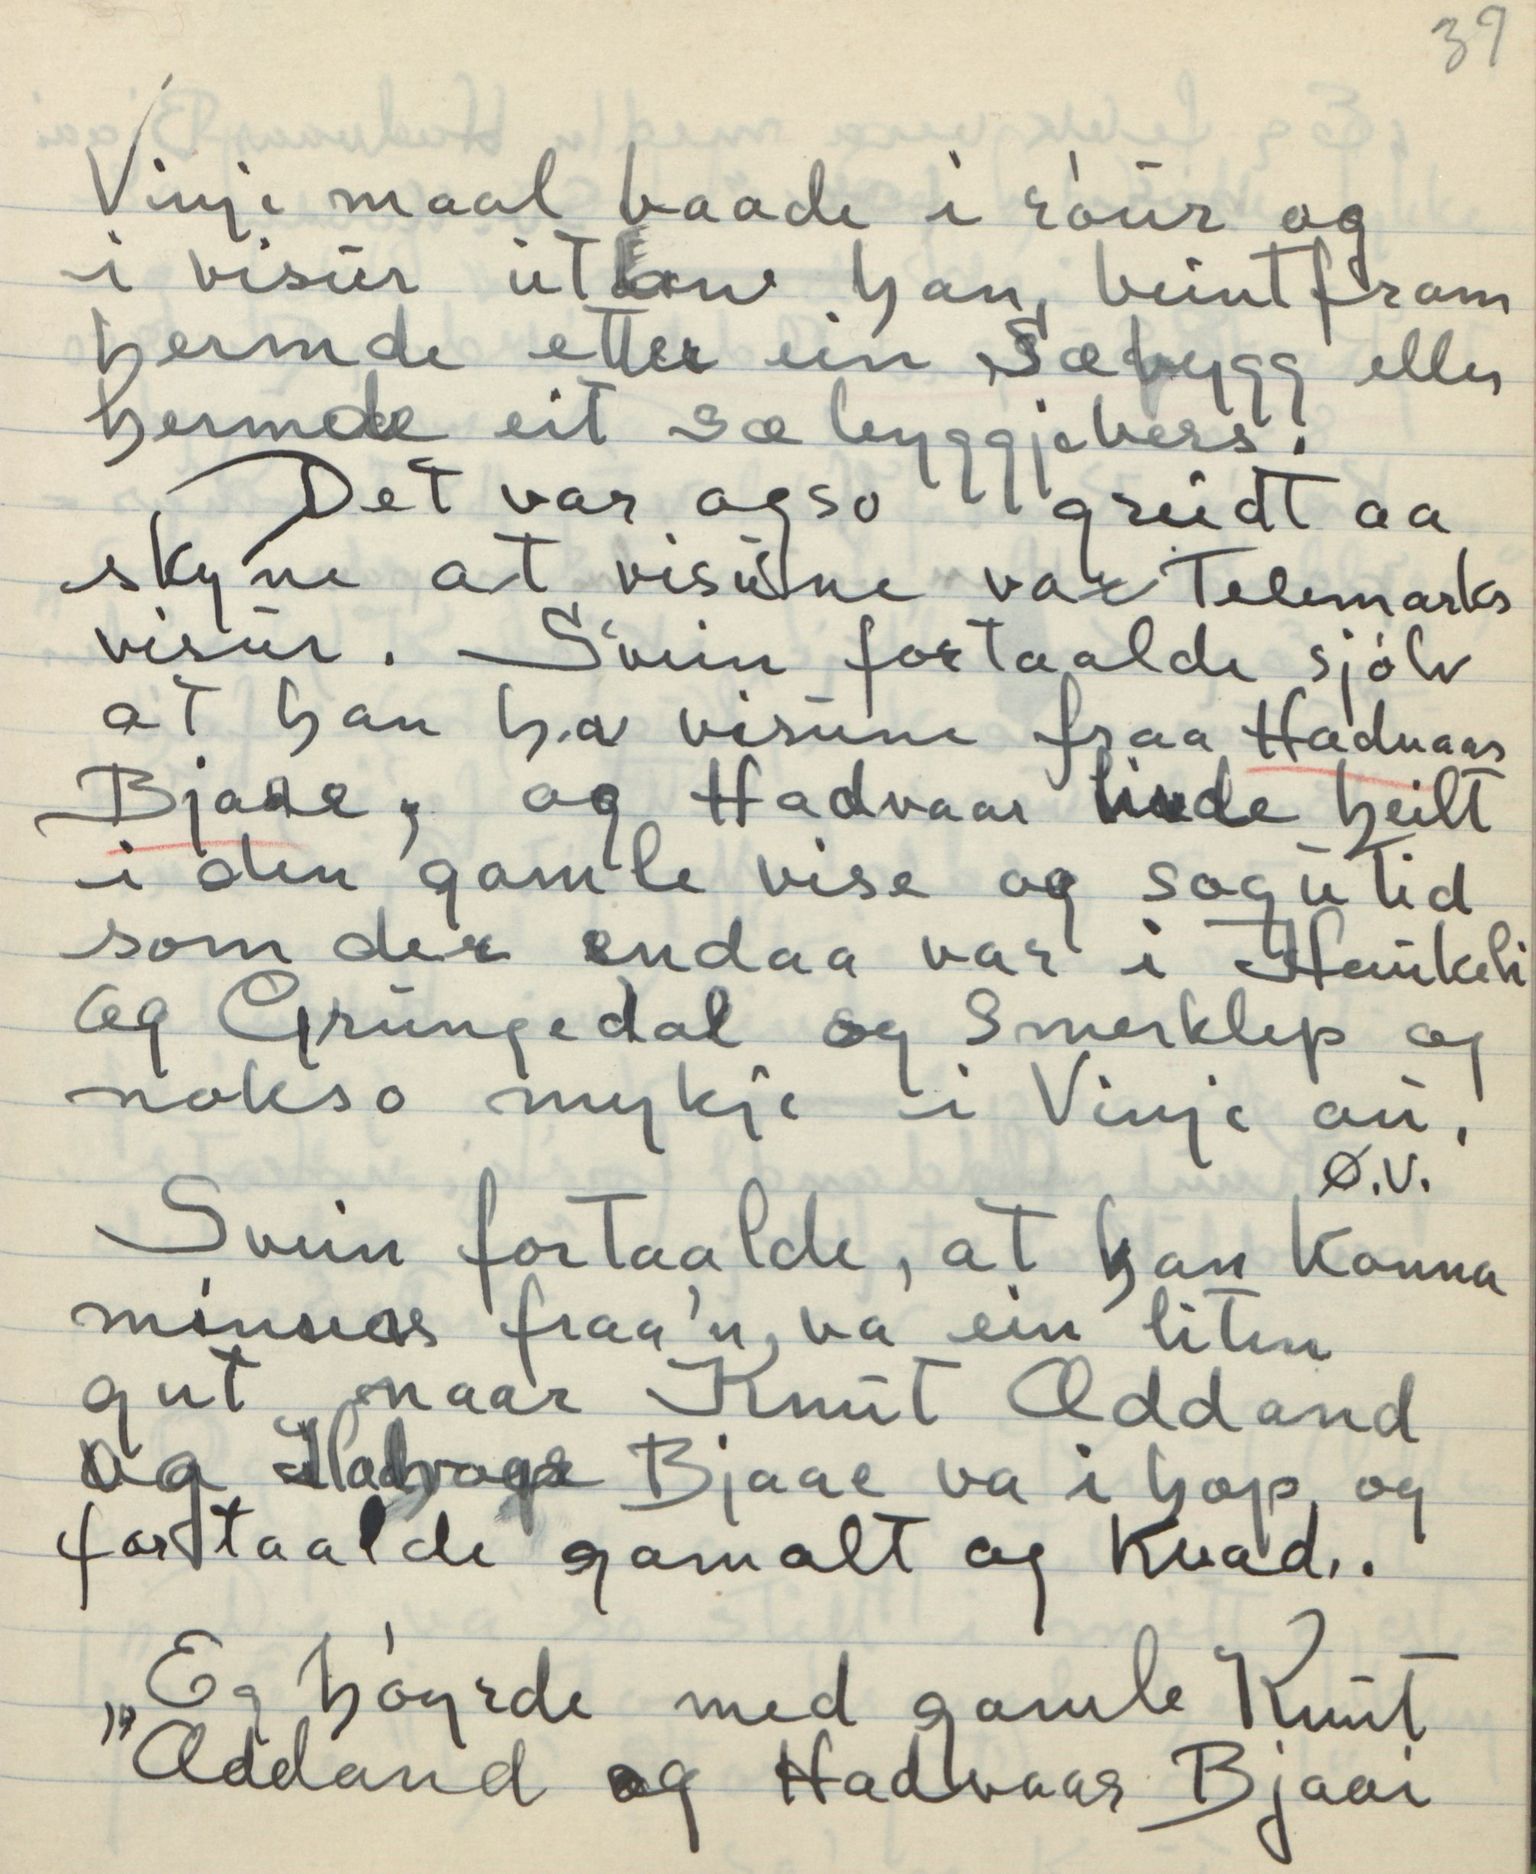 39
Vinje maal baade i róur og
i visur utanº han beintfram
hermde etter ein Sæbygg eller
hermde eit sæbyggjevers.
Det var ogso greidt aa
skyne at visune var Telemarks
visur. Svein fortaalde sjólv
at han ha visune fraa Hadvaar
Bjaae, og Hadvaar livde heilt
i den gamle vise og sogutid
som der endaa var i Haukeli
og Grungedal og Smerklep og
nokso mykje i Vinje au.
Ø.V.
Svein fortaalde, at han konna
minnas fraa'n va ein liten
gut naar Knut Oddand
og Hadvaar Bjaae va i hop og
fortaalde gamalt og kvad..
„Eg hóyrde med gamle Knut
"Oddand og Hadvaar Bjaai